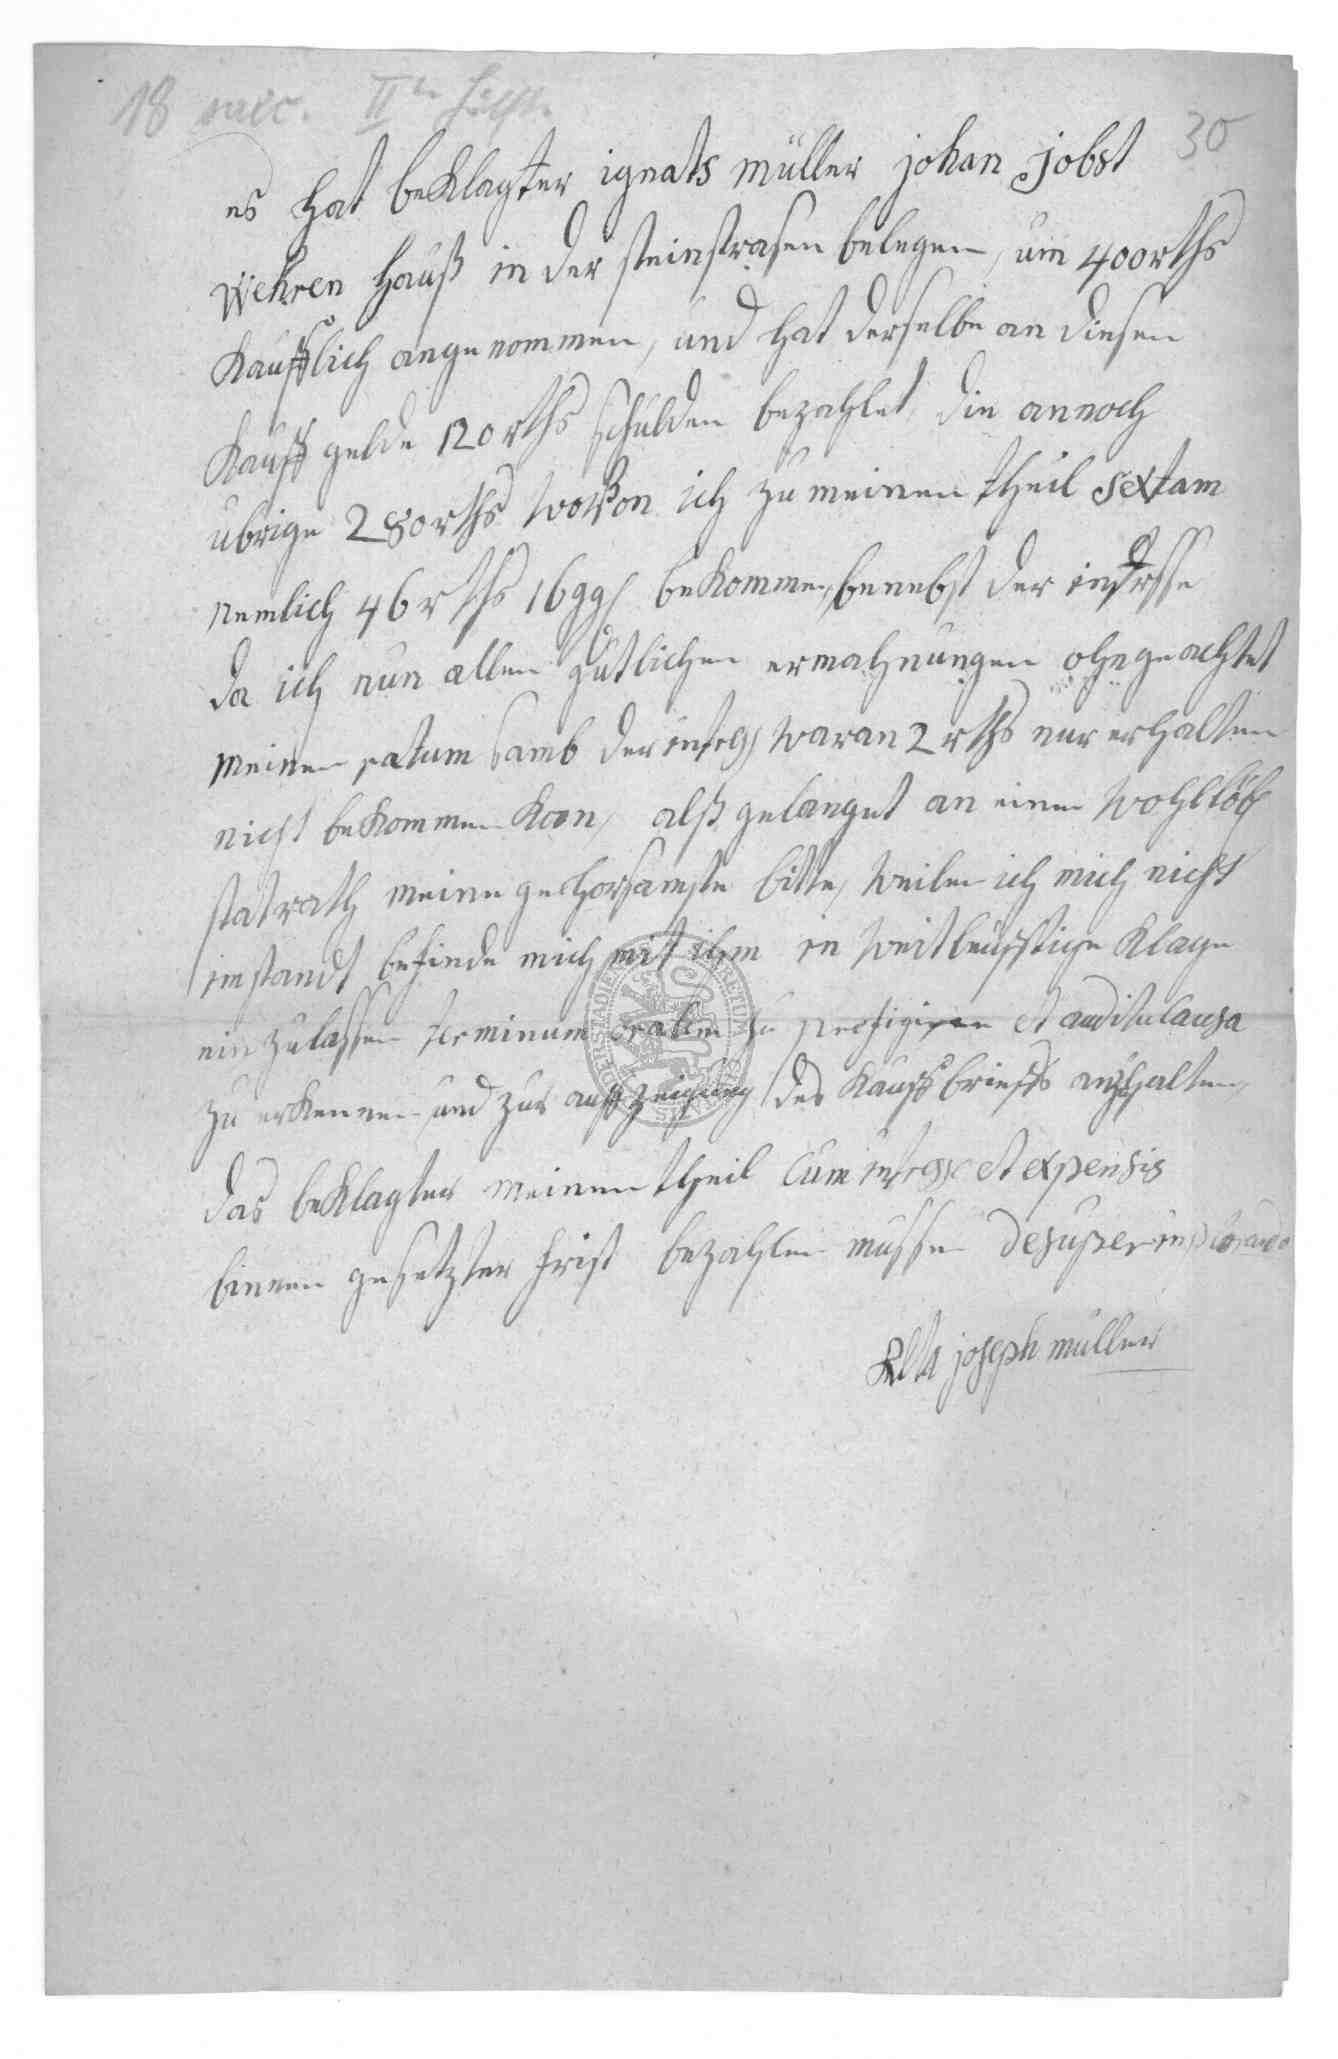 18 saec. II te Hälft.
30
es hat beklagter ignats müller johan jobst
wehren hauß in der steinstrasen belegen, um 400 rths
kaufflich angenommen, und hat derselbe an diesen
kauff gelde 120 rths schulden bezahlet, die annoch
ubrige 280 rths wovon ich zu meinen theil sextam
nemlich 46 rths 16 ggl bekomme, benebst der intresse
da ich nun allen gütlichen ermahnungen ohngeachtet
meinen ratum samb der intress waran 2 rths nur erhalten
nicht bekommen kan, alß gelanget an einen wohllöbl
statrath meine gehorsamste bitte, weilen ich mich nicht
imstandt befinde mich mit ihm in weitleufftige klage
ein zulassen terminum oralem zu prefigiren et audita causa
zu erkennen und zur auffzeigung des kauff briefs anzuhalten,
das beklagter meinen theil cum intresse et expensis
binnen gesetzter frist bezahlen musse desuper implorando
joseph müller